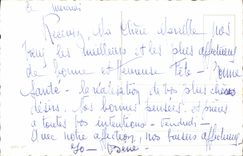 Ce mercredi
Recevez, Ma Chère Marcelle nos
vœux les meilleurs et les plus affectueux
de bonne et heureuse Fête - Bonne
Santé - la réalisation de vos plus chers
désirs. Nos bonnes pensées et prières
à toutes vos intentions -
Avec notre affection, nos baisers affectueux